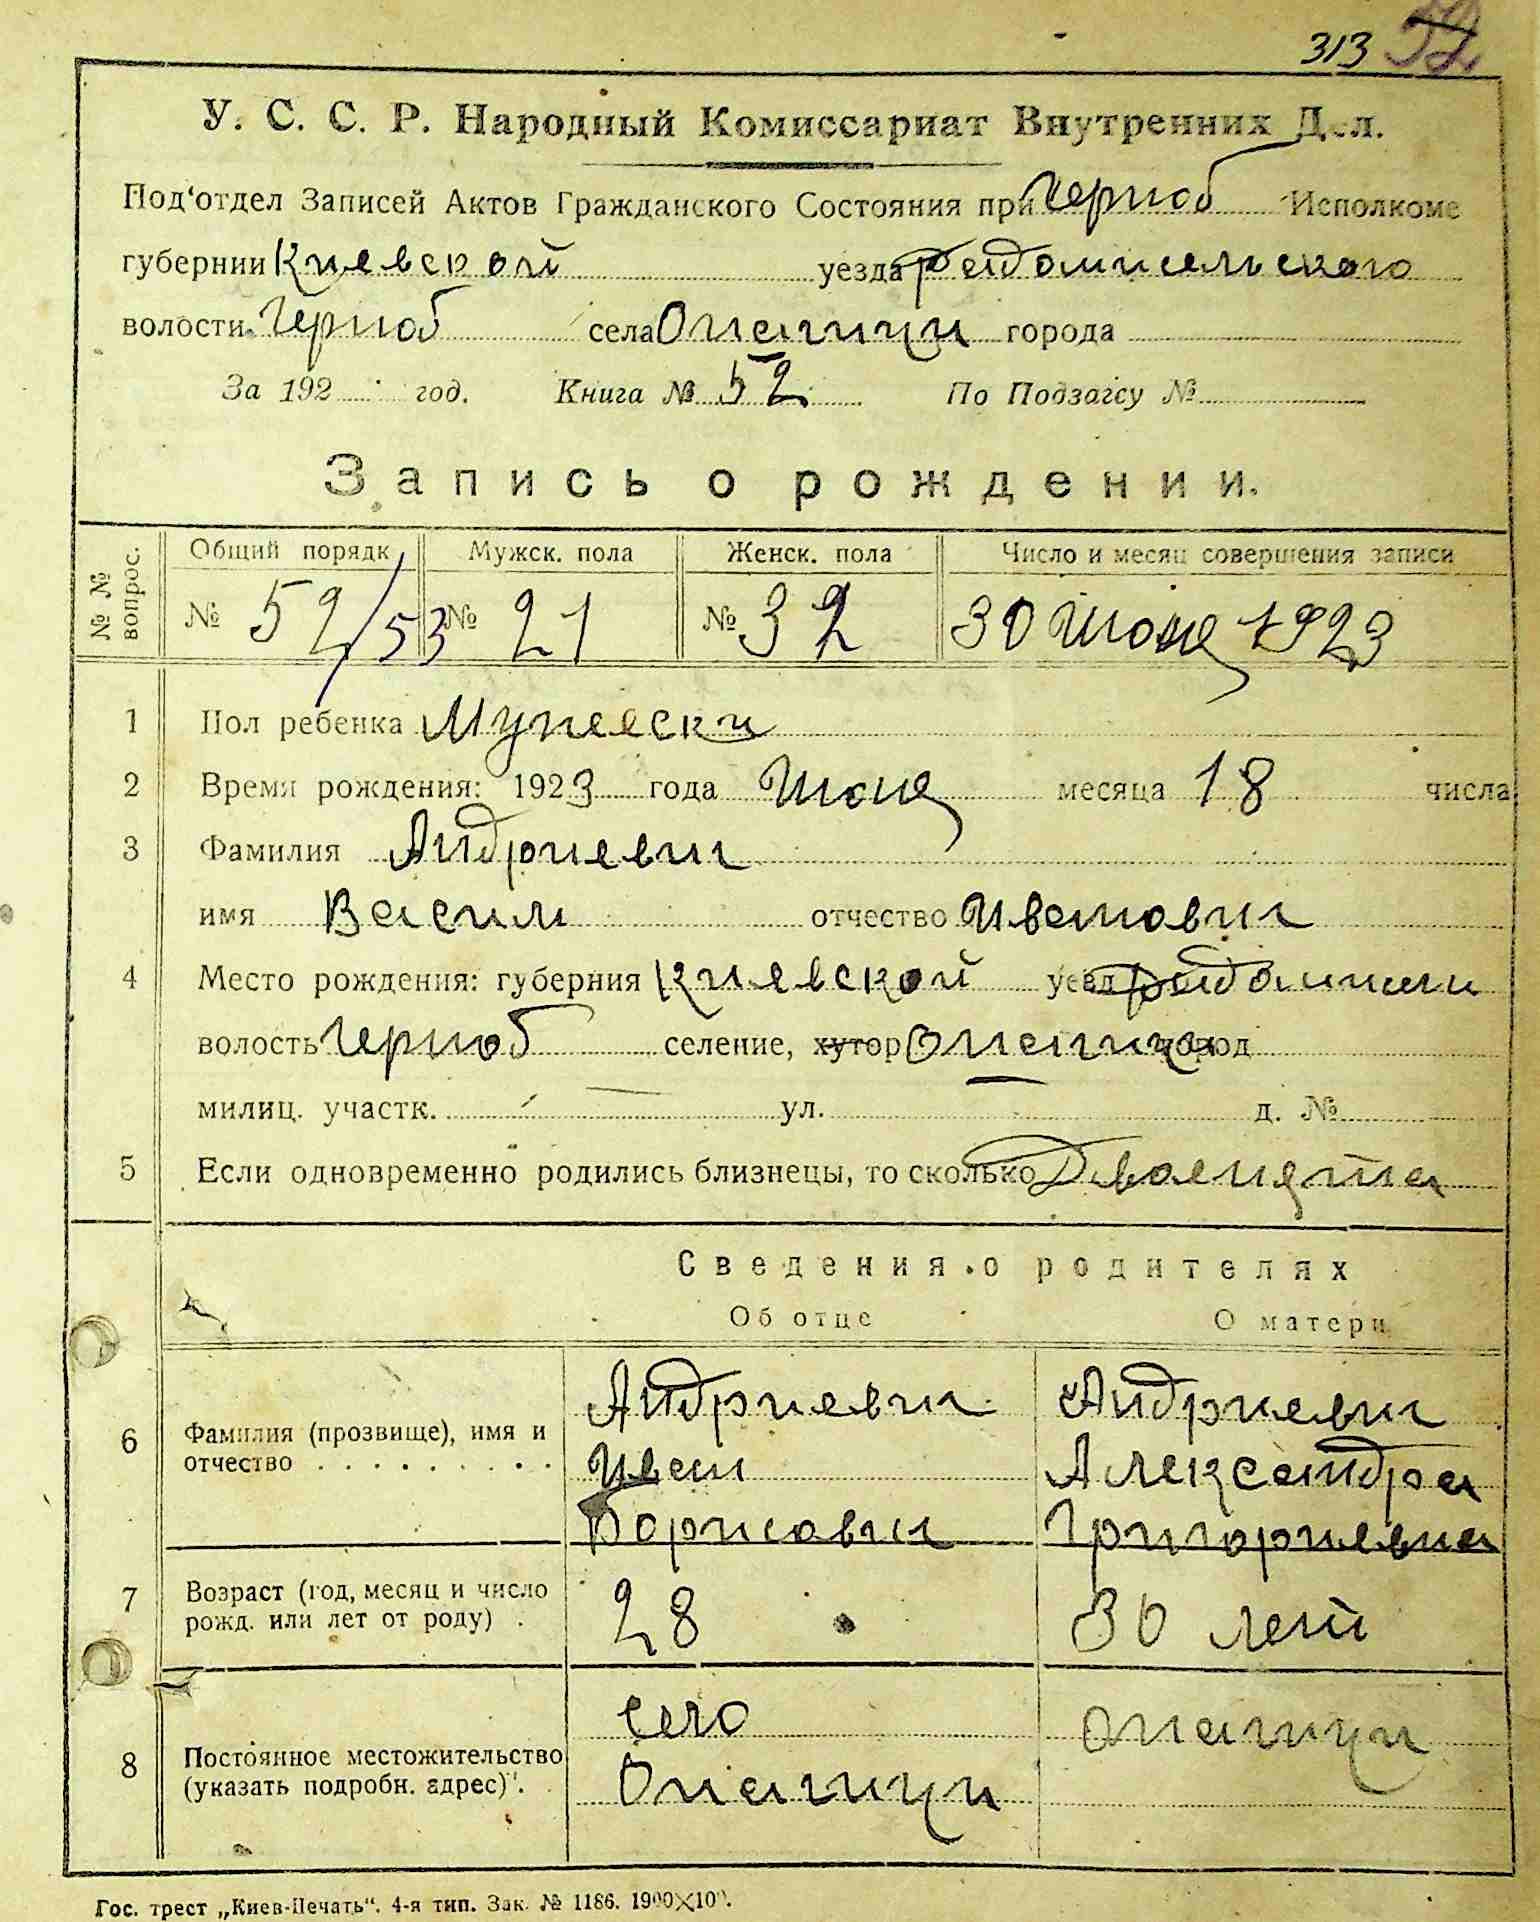 313 52
У. С. С. Р. Народный Комиссариат Внутренних Дел.
Под‘отдел Записей Актов Гражданского Состояния при Черноб Исполкоме
губернии Киевской уезда Радомисельского
волости Черноб села Опачичи города
За 192 год. Книга № 52 По Подзагсу №
Запись о рождении.
№ № вопрос. Общий порядк Мужск. пола Женск. пола Число и месяц совершения записи
№ 52/53 № 21 № 32 30 Июня 1923
1 Пол ребенка Мужески
2 Время рождения: 1923 года Июня месяца 18 числа
3 Фамилия Андриевич
имя Васил отчество Иванович
4 Место рождения: губерния Киевской уезд Радомисл
волость Черноб селение, хутор Опачичи город
милиц. участк. ул. д. №
5 Если одновременно родились близнецы, то сколько Двоенята
Сведения о родителях
Об отце О матери
6 Фамилия (прозвище), имя и отчество Андриевич Иван Борисович Андриевич Александра Григориевна
7 Возраст (год, месяц и число рожд. или лет от роду) 28 30 лет
8 Постоянное местожительство (указать подробн. адрес). село Опачичи Опачичи
Гос. трест „Киев-Печать“. 4-я тип. Зак. № 1186. 1900×100.